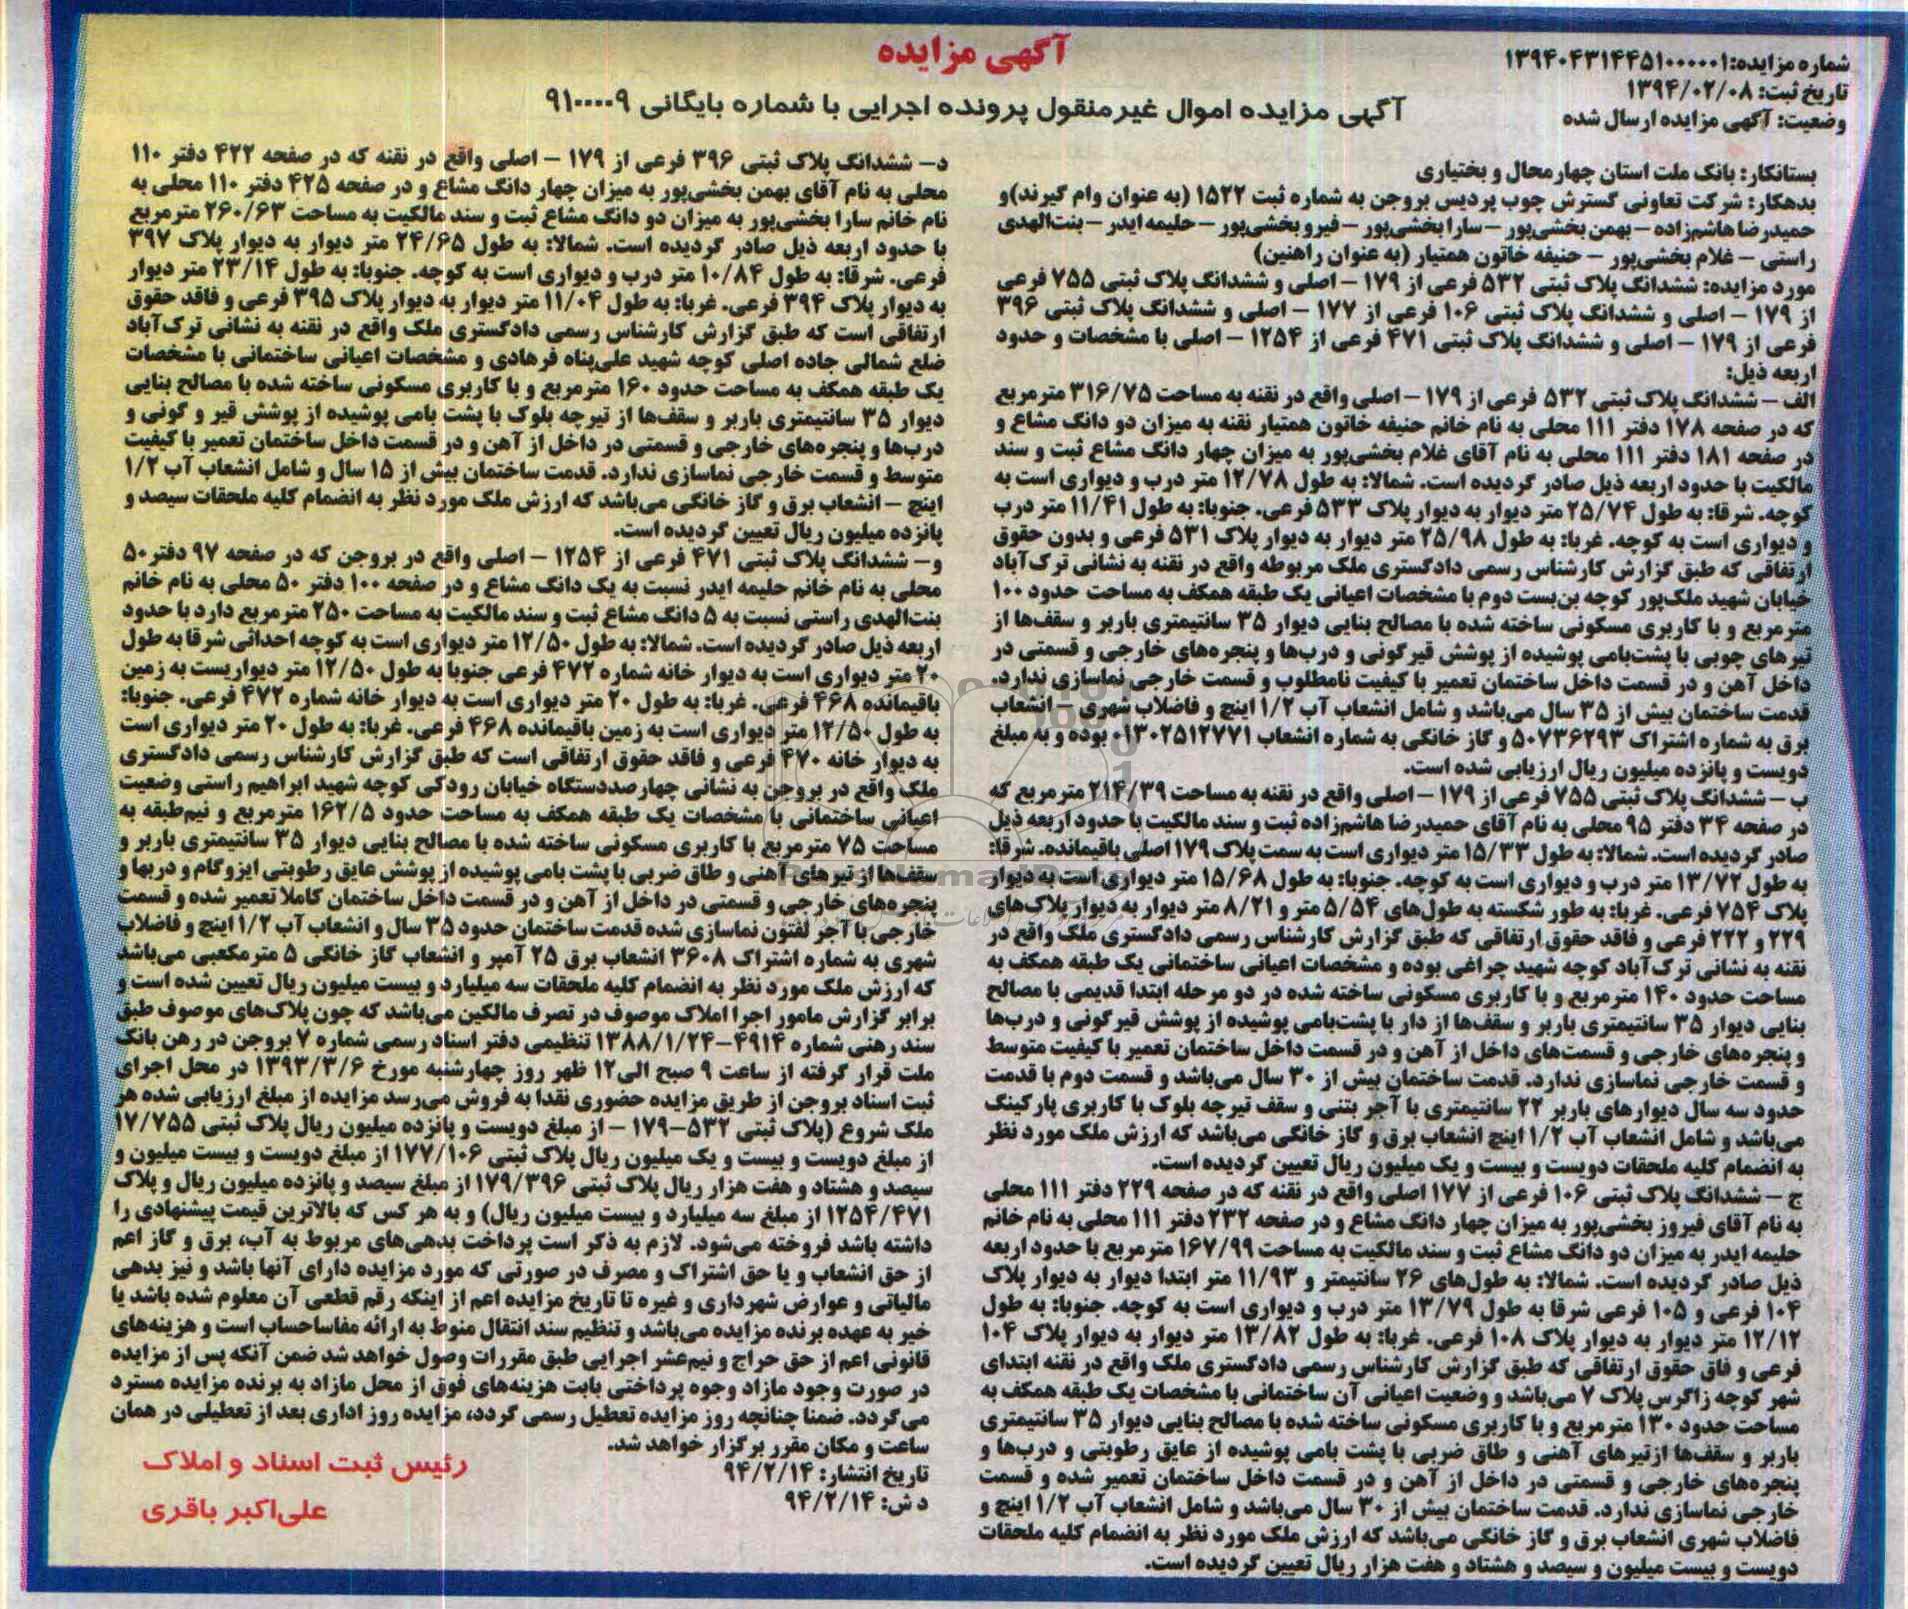 آگهی مزایده
شماره مزایده: ۱۳۹۴۰۴۳۱۴۴۵۱۰۰۰۰۰۱
تاریخ ثبت: ۱۳۹۴/۰۲/۰۸
وضعیت: آگهی مزایده ارسال شده
آگهی مزایده اموال غیرمنقول پرونده اجرایی با شماره بایگانی ۹۱۰۰۰۰۹
بستانکار: بانک ملت استان چهارمحال و بختیاری
بدهکار: شرکت تعاونی گسترش چوب پردیس بروجن به شماره ثبت ۱۵۲۲ (به عنوان وام گیرند)و
حمیدرضا هاشم‌زاده – بهمن بخشی‌پور – سارا بخشی‌پور – فیرو بخشی‌پور – حلیمه ایدر – بنت‌الهدی
راستی – غلام بخشی‌پور – حنیفه خاتون همتیار (به عنوان راهنین)
مورد مزایده: ششدانگ پلاک ثبتی ۵۳۲ فرعی از ۱۷۹ – اصلی و ششدانگ پلاک ثبتی ۷۵۵ فرعی
از ۱۷۹ – اصلی و ششدانگ پلاک ثبتی ۱۰۶ فرعی از ۱۷۷ – اصلی و ششدانگ پلاک ثبتی ۳۹۶
فرعی از ۱۷۹ – اصلی و ششدانگ پلاک ثبتی ۴۷۱ فرعی از ۱۲۵۴ – اصلی با مشخصات و حدود
اربعه ذیل:
الف – ششدانگ پلاک ثبتی ۵۳۲ فرعی از ۱۷۹ – اصلی واقع در نقنه به مساحت ۳۱۶/۷۵ مترمربع
که در صفحه ۱۷۸ دفتر ۱۱۱ محلی به نام خانم حنیفه خاتون همتیار نقنه به میزان دو دانگ مشاع و
در صفحه ۱۸۱ دفتر ۱۱۱ محلی به نام آقای غلام بخشی‌پور به میزان چهار دانگ مشاع ثبت و سند
مالکیت با حدود اربعه ذیل صادر گردیده است. شمالا: به طول ۱۲/۷۸ متر درب و دیواری است به
کوچه. شرقا: به طول ۲۵/۷۴ متر دیوار به دیوار پلاک ۵۳۳ فرعی. جنوبا: به طول ۱۱/۴۱ متر درب
و دیواری است به کوچه. غربا: به طول ۲۵/۹۸ متر دیوار به دیوار پلاک ۵۳۱ فرعی و بدون حقوق
ارتفاقی که طبق گزارش کارشناس رسمی دادگستری ملک مربوطه واقع در نقنه به نشانی ترک‌آباد
خیابان شهید ملک‌پور کوچه بن‌بست دوم با مشخصات اعیانی یک طبقه همکف به مساحت حدود ۱۰۰
مترمربع و با کاربری مسکونی ساخته شده با مصالح بنایی دیوار ۳۵ سانتیمتری باربر و سقف‌ها از
تیرهای چوبی با پشت‌بامی پوشیده از پوشش قیرگونی و درب‌ها و پنجره‌های خارجی و قسمتی در
داخل آهن و در قسمت داخل ساختمان تعمیر با کیفیت نامطلوب و قسمت خارجی نماسازی ندارد.
قدمت ساختمان بیش از ۳۵ سال می‌باشد و شامل انشعاب آب ۱/۲ اینچ و فاضلاب شهری – انشعاب
برق به شماره اشتراک ۵۰۷۳۶۲۹۳ و گاز خانگی به شماره انشعاب ۰۱۳۰۲۵۱۲۷۷۱ بوده و به مبلغ
دویست و پانزده میلیون ریال ارزیابی شده است.
ب – ششدانگ پلاک ثبتی ۷۵۵ فرعی از ۱۷۹ – اصلی واقع در نقنه به مساحت ۲۱۴/۳۹ مترمربع که
در صفحه ۳۴ دفتر ۹۵ محلی به نام آقای حمیدرضا هاشم‌زاده ثبت و سند مالکیت با حدود اربعه ذیل
صادر گردیده است. شمالا: به طول ۱۵/۳۳ متر دیواری است به سمت پلاک ۱۷۹ اصلی باقیمانده. شرقا:
به طول ۱۳/۷۲ متر درب و دیواری است به کوچه. جنوبا: به طول ۱۵/۶۸ متر دیواری است به دیوار
پلاک ۷۵۴ فرعی. غربا: به طور شکسته به طول‌های ۵/۵۴ متر و ۸/۲۱ متر دیوار به دیوار پلاک‌های
۲۲۹ و ۲۲۲ فرعی و فاقد حقوق ارتفاقی که طبق گزارش کارشناس رسمی دادگستری ملک واقع در
نقنه به نشانی ترک‌آباد کوچه شهید چراغی بوده و مشخصات اعیانی ساختمانی یک طبقه همکف به
مساحت حدود ۱۴۰ مترمربع و با کاربری مسکونی ساخته شده در دو مرحله ابتدا قدیمی با مصالح
بنایی دیوار ۳۵ سانتیمتری باربر و سقف‌ها از دار با پشت‌بامی پوشیده از پوشش قیرگونی و درب‌ها
و پنجره‌های خارجی و قسمت‌های داخل از آهن و در قسمت داخل ساختمان تعمیر با کیفیت متوسط
و قسمت خارجی نماسازی ندارد. قدمت ساختمان بیش از ۳۰ سال می‌باشد و قسمت دوم با قدمت
حدود سه سال دیوارهای باربر ۲۲ سانتیمتری با آجر بتنی و سقف تیرچه بلوک با کاربری پارکینگ
می‌باشد و شامل انشعاب آب ۱/۲ اینچ انشعاب برق و گاز خانگی می‌باشد که ارزش ملک مورد نظر
به انضمام کلیه ملحقات دویست و بیست و یک میلیون ریال تعیین گردیده است.
ج – ششدانگ پلاک ثبتی ۱۰۶ فرعی از ۱۷۷ اصلی واقع در نقنه که در صفحه ۲۲۹ دفتر ۱۱۱ محلی
به نام آقای فیروز بخشی‌پور به میزان چهار دانگ مشاع و در صفحه ۲۳۲ دفتر ۱۱۱ محلی به نام خانم
حلیمه ایدر به میزان دو دانگ مشاع ثبت و سند مالکیت به مساحت ۱۶۷/۹۹ مترمربع با حدود اربعه
ذیل صادر گردیده است. شمالا: به طول‌های ۲۶ سانتیمتر و ۱۱/۹۳ متر ابتدا دیوار به دیوار پلاک
۱۰۴ فرعی و ۱۰۵ فرعی شرقا به طول ۱۳/۷۹ متر درب و دیواری است به کوچه. جنوبا: به طول
۱۲/۱۲ متر دیوار به دیوار پلاک ۱۰۸ فرعی. غربا: به طول ۱۳/۸۲ متر دیوار به دیوار پلاک ۱۰۴
فرعی و فاق حقوق ارتفاقی که طبق گزارش کارشناس رسمی دادگستری ملک واقع در نقنه ابتدای
شهر کوچه زاگرس پلاک ۷ می‌باشد و وضعیت اعیانی آن ساختمانی با مشخصات یک طبقه همکف به
مساحت حدود ۱۳۰ مترمربع و با کاربری مسکونی ساخته شده با مصالح بنایی دیوار ۳۵ سانتیمتری
باربر و سقف‌ها ازتیرهای آهنی و طاق ضربی با پشت بامی پوشیده از عایق رطوبتی و درب‌ها و
پنجره‌های خارجی و قسمتی در داخل از آهن و در قسمت داخل ساختمان تعمیر شده و قسمت
خارجی نماسازی ندارد. قدمت ساختمان بیش از ۳۰ سال می‌باشد و شامل انشعاب آب ۱/۲ اینچ و
فاضلاب شهری انشعاب برق و گاز خانگی می‌باشد که ارزش ملک مورد نظر به انضمام کلیه ملحقات
دویست و بیست میلیون و سیصد و هشتاد و هفت هزار ریال تعیین گردیده است.
د– ششدانگ پلاک ثبتی ۳۹۶ فرعی از ۱۷۹ – اصلی واقع در نقنه که در صفحه ۴۲۲ دفتر ۱۱۰
محلی به نام آقای بهمن بخشی‌پور به میزان چهار دانگ مشاع و در صفحه ۴۲۵ دفتر ۱۱۰ محلی به
نام خانم سارا بخشی‌پور به میزان دو دانگ مشاع ثبت و سند مالکیت به مساحت ۲۶۰/۶۳ مترمربع
با حدود اربعه ذیل صادر گردیده است. شمالا: به طول ۲۴/۶۵ متر دیوار به دیوار پلاک ۳۹۷
فرعی. شرقا: به طول ۱۰/۸۴ متر درب و دیواری است به کوچه. جنوبا: به طول ۲۳/۱۴ متر دیوار
به دیوار پلاک ۳۹۴ فرعی. غربا: به طول ۱۱/۰۴ متر دیوار به دیوار پلاک ۳۹۵ فرعی و فاقد حقوق
ارتفاقی است که طبق گزارش کارشناس رسمی دادگستری ملک واقع در نقنه به نشانی ترک‌آباد
ضلع شمالی جاده اصلی کوچه شهید علی‌پناه فرهادی و مشخصات اعیانی ساختمانی با مشخصات
یک طبقه همکف به مساحت حدود ۱۶۰ مترمربع و با کاربری مسکونی ساخته شده با مصالح بنایی
دیوار ۳۵ سانتیمتری باربر و سقف‌ها از تیرچه بلوک با پشت بامی پوشیده از پوشش قیر و گونی و
درب‌ها و پنجره‌های خارجی و قسمتی در داخل از آهن و در قسمت داخل ساختمان تعمیر با کیفیت
متوسط و قسمت خارجی نماسازی ندارد. قدمت ساختمان بیش از ۱۵ سال و شامل انشعاب آب ۱/۲
اینچ – انشعاب برق و گاز خانگی می‌باشد که ارزش ملک مورد نظر به انضمام کلیه ملحقات سیصد و
پانزده میلیون ریال تعیین گردیده است.
و– ششدانگ پلاک ثبتی ۴۷۱ فرعی از ۱۲۵۴ – اصلی واقع در بروجن که در صفحه ۹۷ دفتر ۵۰
محلی به نام خانم حلیمه ایدر نسبت به یک دانگ مشاع و در صفحه ۱۰۰ دفتر ۵۰ محلی به نام خانم
بنت‌الهدی راستی نسبت به ۵ دانگ مشاع ثبت و سند مالکیت به مساحت ۲۵۰ مترمربع دارد با حدود
اربعه ذیل صادر گردیده است. شمالا: به طول ۱۲/۵۰ متر دیواری است به کوچه احداثی شرقا به طول
۲۰ متر دیواری است به دیوار خانه شماره ۴۷۲ فرعی جنوبا به طول ۱۲/۵۰ متر دیواریست به زمین
باقیمانده ۴۶۸ فرعی. غربا: به طول ۲۰ متر دیواری است به دیوار خانه شماره ۴۷۲ فرعی. جنوبا:
به طول ۱۲/۵۰ متر دیواری است به زمین باقیمانده ۴۶۸ فرعی. غربا: به طول ۲۰ متر دیواری است
به دیوار خانه ۴۷۰ فرعی و فاقد حقوق ارتفاقی است که طبق گزارش کارشناس رسمی دادگستری
ملک واقع در بروجن به نشانی چهارصددستگاه خیابان رودکی کوچه شهید ابراهیم راستی وضعیت
اعیانی ساختمانی با مشخصات یک طبقه همکف به مساحت حدود ۱۶۲/۵ مترمربع و نیم‌طبقه به
مساحت ۷۵ مترمربع با کاربری مسکونی ساخته شده با مصالح بنایی دیوار ۳۵ سانتیمتری باربر و
سقف‌ها از تیرهای آهنی و طاق ضربی با پشت بامی پوشیده از پوشش عایق رطوبتی ایزوگام و دربها و
پنجره‌های خارجی و قسمتی در داخل از آهن و در قسمت داخل ساختمان کاملا تعمیر شده و قسمت
خارجی با آجر لفتون نماسازی شده قدمت ساختمان حدود ۳۵ سال و انشعاب آب ۱/۲ اینچ و فاضلاب
شهری به شماره اشتراک ۳۶۰۸ انشعاب برق ۲۵ آمپر و انشعاب گاز خانگی ۵ مترمکعبی می‌باشد
که ارزش ملک مورد نظر به انضمام کلیه ملحقات سه میلیارد و بیست میلیون ریال تعیین شده است و
برابر گزارش مامور اجرا املاک موصوف در تصرف مالکین می‌باشد که چون پلاک‌های موصوف طبق
سند رهنی شماره ۴۹۱۴–۱۳۸۸/۱/۲۴ تنظیمی دفتر اسناد رسمی شماره ۷ بروجن در رهن بانک
ملت قرار گرفته از ساعت ۹ صبح الی۱۲ ظهر روز چهارشنبه مورخ ۱۳۹۳/۳/۶ در محل اجرای
ثبت اسناد بروجن از طریق مزایده حضوری نقدا به فروش می‌رسد مزایده از مبلغ ارزیابی شده هر
ملک شروع (پلاک ثبتی ۵۳۲–۱۷۹ – از مبلغ دویست و پانزده میلیون ریال پلاک ثبتی ۱۷/۷۵۵
از مبلغ دویست و بیست و یک میلیون ریال پلاک ثبتی ۱۷۷/۱۰۶ از مبلغ دویست و بیست میلیون و
سیصد و هشتاد و هفت هزار ریال پلاک ثبتی ۱۷۹/۳۹۶ از مبلغ سیصد و پانزده میلیون ریال و پلاک
۱۲۵۴/۴۷۱ از مبلغ سه میلیارد و بیست میلیون ریال) و به هر کس که بالاترین قیمت پیشنهادی را
داشته باشد فروخته می‌شود. لازم به ذکر است پرداخت بدهی‌های مربوط به آب، برق و گاز اعم
از حق انشعاب و یا حق اشتراک و مصرف در صورتی که مورد مزایده دارای آنها باشد و نیز بدهی
مالیاتی و عوارض شهرداری و غیره تا تاریخ مزایده اعم از اینکه رقم قطعی آن معلوم شده باشد یا
خیر به عهده برنده مزایده می‌باشد و تنظیم سند انتقال منوط به ارائه مفاساحساب است و هزینه‌های
قانونی اعم از حق حراج و نیم‌عشر اجرایی طبق مقررات وصول خواهد شد ضمن آنکه پس از مزایده
در صورت وجود مازاد وجوه پرداختی بابت هزینه‌های فوق از محل مازاد به برنده مزایده مسترد
می‌گردد. ضمنا چنانچه روز مزایده تعطیل رسمی گردد، مزایده روز اداری بعد از تعطیلی در همان
ساعت و مکان مقرر برگزار خواهد شد.
تاریخ انتشار: ۹۴/۲/۱۴
د ش: ۹۴/۲/۱۴
رئیس ثبت اسناد و املاک
علی‌اکبر باقری